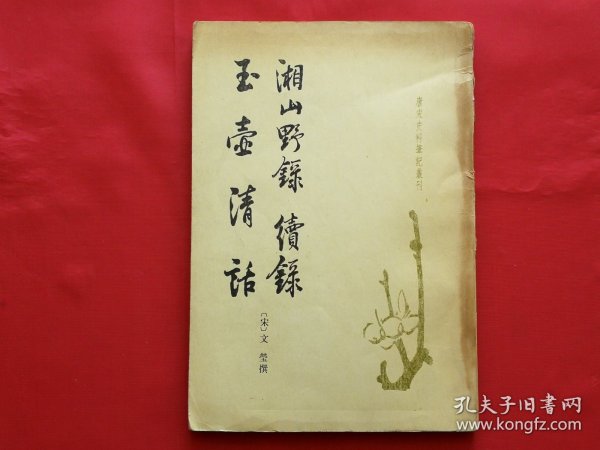 唐宋史料筆記叢刊
湘山野錄 續錄
玉壺清話
〔宋〕文瑩撰
孔夫子旧書网
www.kongfz.com